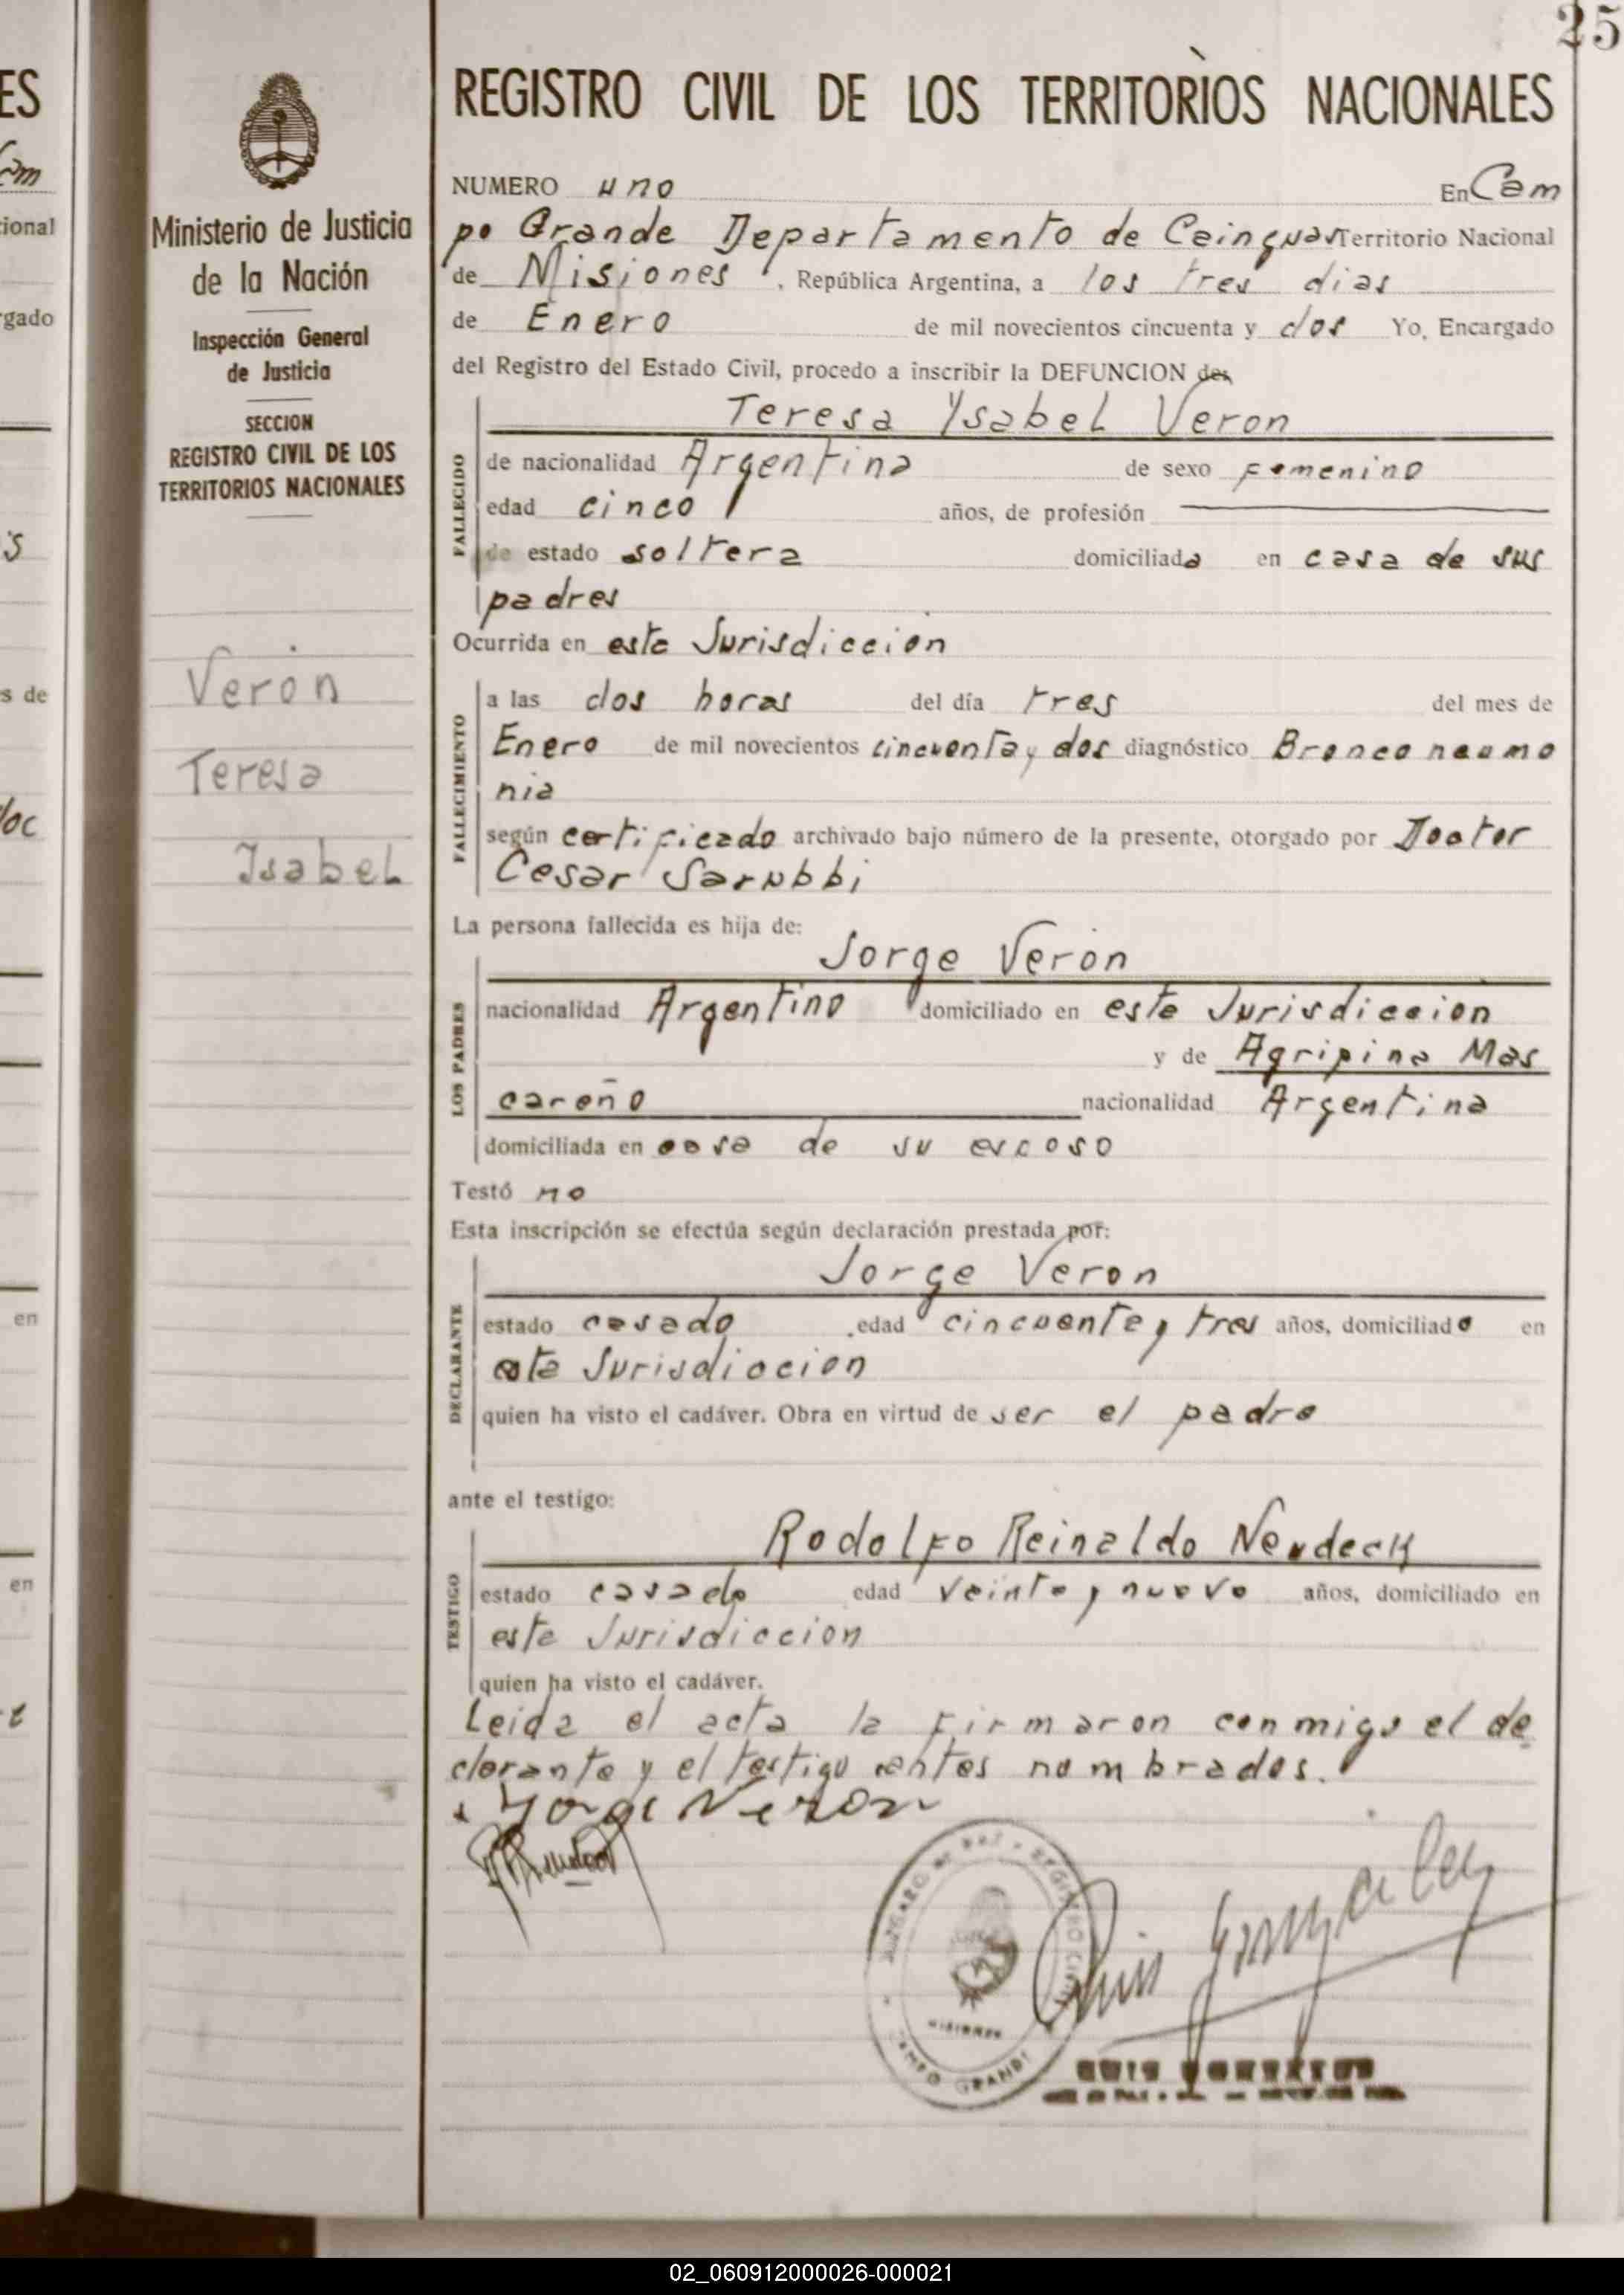 25
REGISTRO CIVIL DE LOS TERRITORIOS NACIONALES
Ministerio de Justicia
de la Nación
Inspección General
de Justicia
SECCION
REGISTRO CIVIL DE LOS
TERRITORIOS NACIONALES
Verón
Teresa
Isabel
NUMERO uno En Cam
po Grande Departamento de Cainguas Territorio Nacional
de Misiones, República Argentina, a los tres dias
de Enero de mil novecientos cincuenta y dos Yo, Encargado
del Registro del Estado Civil, procedo a inscribir la DEFUNCION de:
Teresa Ysabel Veron
FALLECIDO
de nacionalidad Argentina de sexo Femenino
edad cinco años, de profesión
de estado soltera domiciliada en casa de sus
padres
Ocurrida en esta Jurisdiccion
FALLECIMIENTO
a las dos horas del día tres del mes de
Enero de mil novecientos cincuenta y dos diagnóstico Bronco neumo
nia
según certificado archivado bajo número de la presente, otorgado por Doctor
Cesar Sarubbi
La persona fallecida es hija de:
Jorge Verón
LOS PADRES
nacionalidad Argentino domiciliado en esta Jurisdiccion
y de Agripina Mas
careño nacionalidad Argentina
domiciliada en casa de su esposo
Testó no
Esta inscripción se efectúa según declaración prestada por:
Jorge Veron
DECLARANTE
estado casado edad cincuenta y tres años, domiciliado en
esta Jurisdiccion
quien ha visto el cadáver. Obra en virtud de ser el padre
ante el testigo:
Rodolfo Reinaldo Neudeck
TESTIGO
estado casado edad veinte y nueve años, domiciliado en
esta Jurisdiccion
quien ha visto el cadáver.
Leida el acta la firmaron conmigo el de
clarante y el testigo antes nombrados.
Jorge Veron
JUZGADO DE PAZ Y REGISTRO CIVIL
MISIONES
CAMPO GRANDE
Luis Gonzalez
LUIS GONZALEZ
02_060912000026-000021